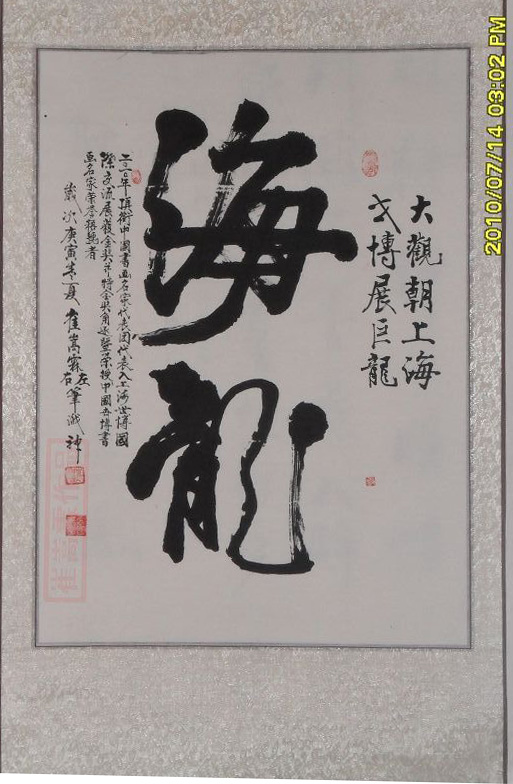 大觀朝上海
戈博展巨龍
海龍
二〇一〇年頂銜中國書画名家代表团代表入上海世博國
際交流展獲金獎并特金奖角逐暨荣授中國世博書
画名家荣誉稱號者
歲次庚寅孟夏崔嵩霖左右筆
2010/07/14 03:02 PM